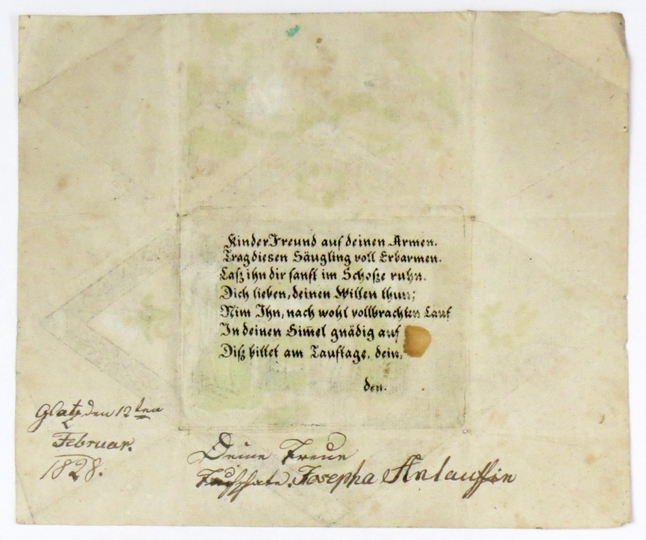 KinderFreund auf deinen Armen.
Trag diesen Säugling voll Erbarmen.
Laß ihn dir sanft im Schoße ruhn.
Dich lieben, deinen Willen thun;
Nim Ihn, nach wohl vollbrachten Lauf
In deinen Himel gnädig auf
Diß bittet am Tauftage, dein,
den.
Glatz, den 12ten
Februar.
1828.
Deine Treue
Josepha Anlauffin